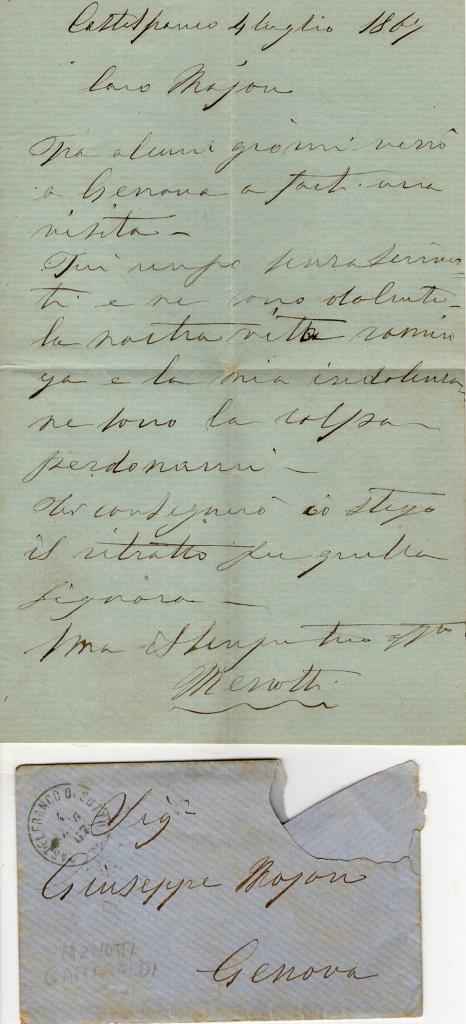 Castelfranco 4 luglio 1867
Caro Mojon
Tra alcuni giorni verrò
a Genova a farti una
visita —
Fui tempo senza scriver
ti e ne sono dolente
la nostra vita ramin
ga e la mia indolenza
ne sono la colpa —
perdonami —
Ti consegnerò io stesso
il ritratto per quella
Signora —
Ama il sempre tuo aff.mo
Menotti
CASTELFRANCO DI
Sig.r
Giuseppe Mojon
Genova
MENOTTI
GARIBALDI